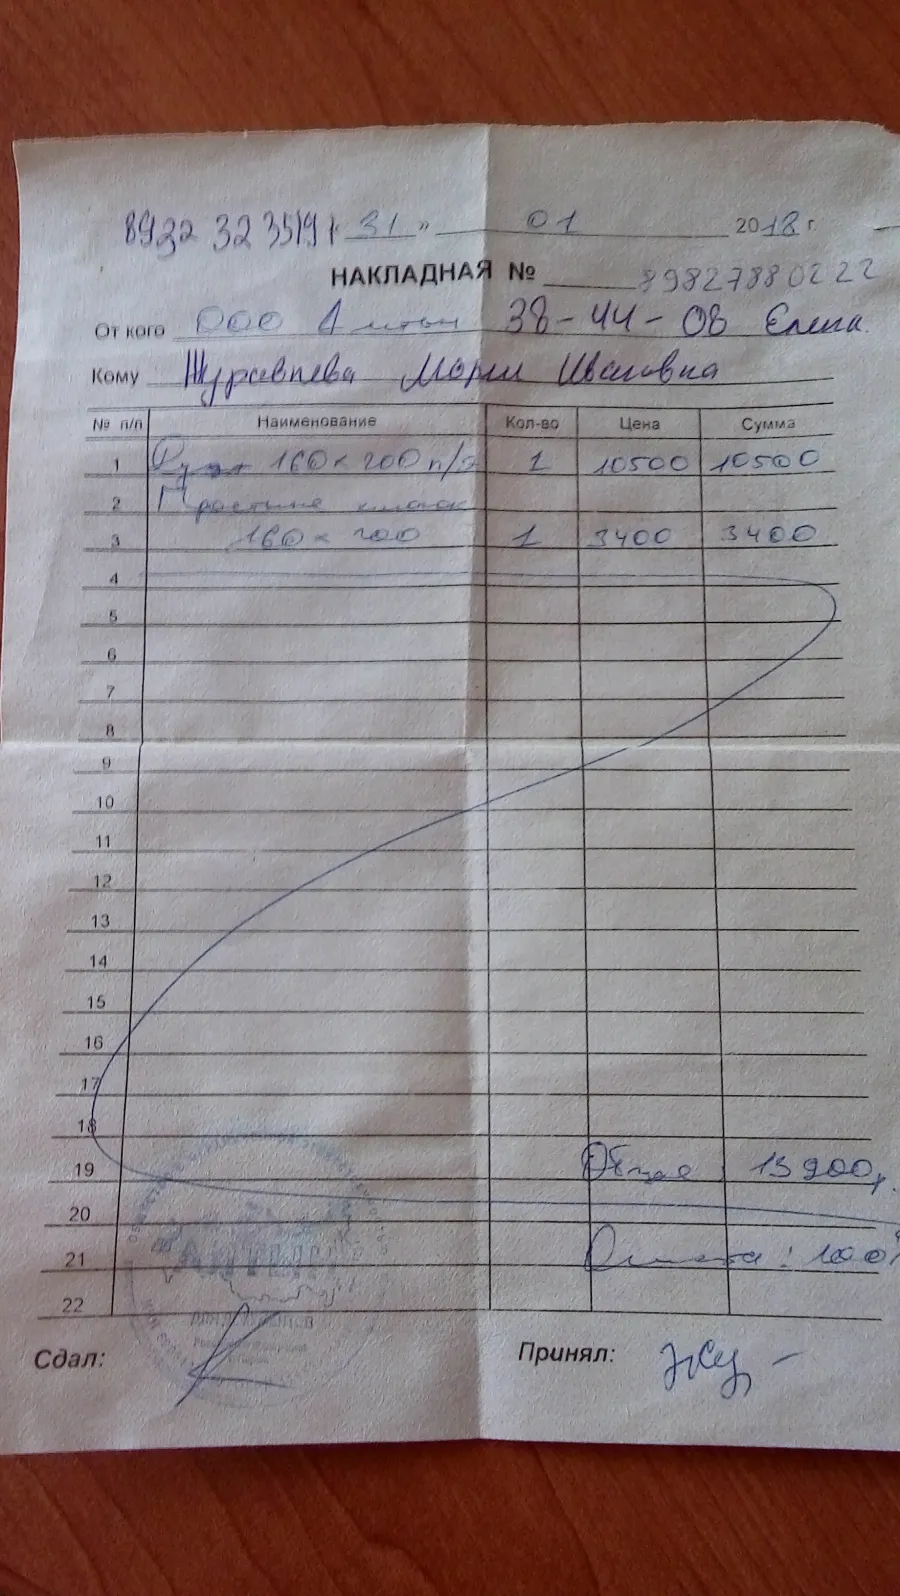 8922 32 35191 « 31 » 01 2018 г.
НАКЛАДНАЯ № 89827880222
От кого ООО 38-44-08 Елена.
Кому Журавлева Мария Ивановна
№ п/п Наименование Кол-во Цена Сумма
1 160 × 200 п/э 1 10500 10500
2 Простыня
3 160 × 200 1 3400 3400
4
5
6
7
8
9
10
11
12
13
14
15
16
17
18
19 Общая 13900р.
20
21 Оплата: 100%
22
Сдал: Принял: